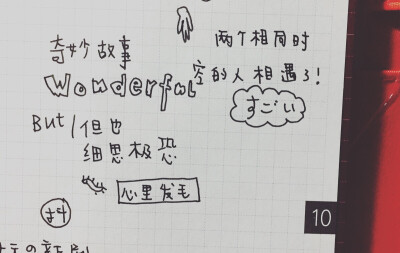 奇妙故事
Wonderful
两个相同时
空的人相遇了!
すごい
But/但也
细思极恐
心里发毛
10